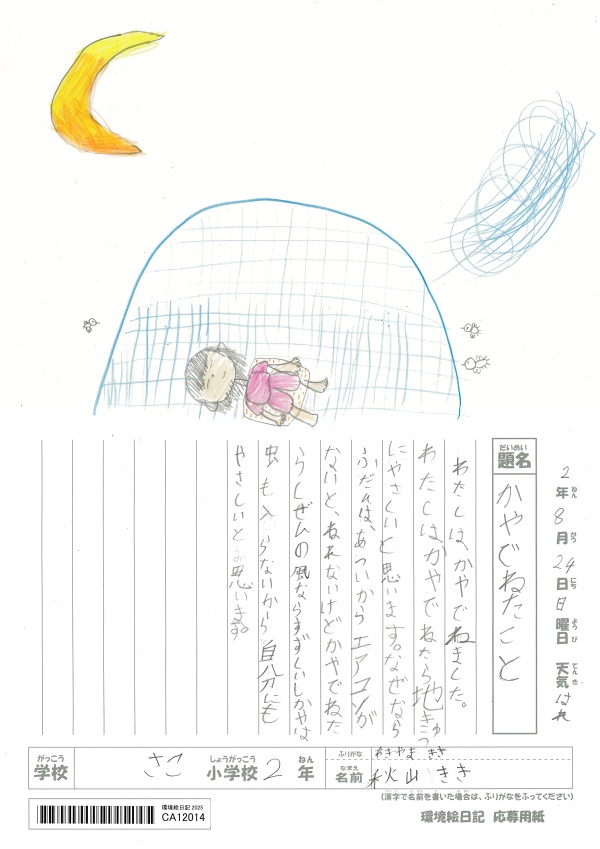 2年8月24日日曜日 天気はれ
ねん がつ にち ようび てんき
だいめい
題名 かやでねたこと
わたしは、かやでねました。
わたしはかやでねたら地きゅう
にやさしいと思います。なぜなら
ふだんは、あついからエアコンが
ないと、ねれないけどかやでねた
らしぜんの風ならすずくしいしかやは
虫も入らないから自分にも
やさしいと思います。
がっこう しょうがっこう ねん
学校 さこ小学校2年
ふりがな あきやま きき
なまえ
名前 秋山 きき
(漢字で名前を書いた場合は、ふりがなをふってください)
環境絵日記 応募用紙
環境絵日記 2025
CA12014